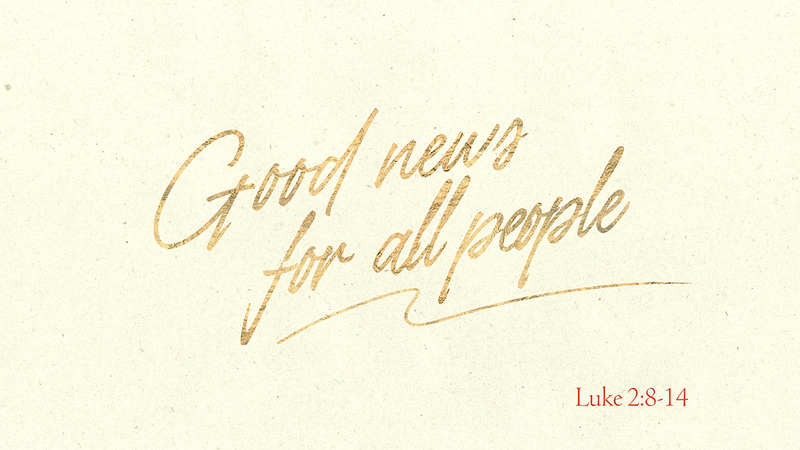 Good news
for all people
Luke 2:8-14